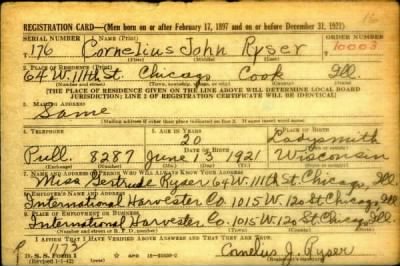 16
REGISTRATION CARD—(Men born on or after February 17, 1897 and on or before December 31, 1921)
SERIAL NUMBER 1. NAME (Print) ORDER NUMBER
T 176 Cornelius John Ryser 10003
(First) (Middle) (Last)
2. PLACE OF RESIDENCE (Print)
64 W. 111th St. Chicago Cook Ill.
[THE PLACE OF RESIDENCE GIVEN ON THE LINE ABOVE WILL DETERMINE LOCAL BOARD
JURISDICTION; LINE 2 OF REGISTRATION CERTIFICATE WILL BE IDENTICAL]
3. MAILING ADDRESS
Same
[Mailing address if other than place indicated on line 2. If same insert word same]
4. TELEPHONE 5. AGE IN YEARS 6. PLACE OF BIRTH
20 Ladysmith
DATE OF BIRTH
Pull 8287 June 13 1921 Wisconsin
(Exchange) (Number) (Mo.) (Day) (Yr.)
7. NAME AND ADDRESS OF PERSON WHO WILL ALWAYS KNOW YOUR ADDRESS
Miss Gertrude Ryser 64 W. 111th St. Chicago, Ill
8. EMPLOYER'S NAME AND ADDRESS
International Harvester Co. 1015 W. 120 St. Chicago, Ill
9. PLACE OF EMPLOYMENT OR BUSINESS
International Harvester Co. 1015 W. 120 St. Chicago, Ill.
I AFFIRM THAT I HAVE VERIFIED ABOVE ANSWERS AND THAT THEY ARE TRUE.
D. S. S. Form 1
(Revised 1-1-42) Cornelius J. Ryser